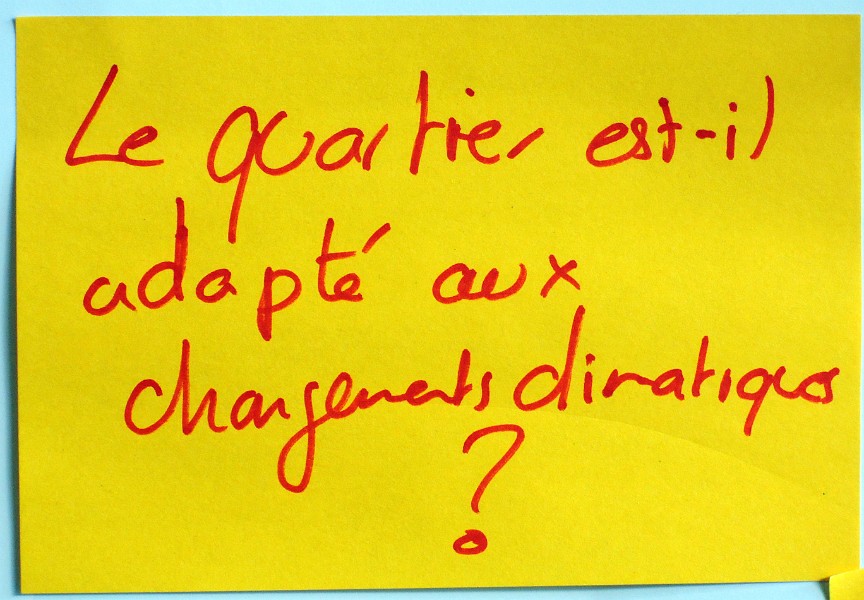 Le quartier est-il
adapté aux
changements climatiques
?